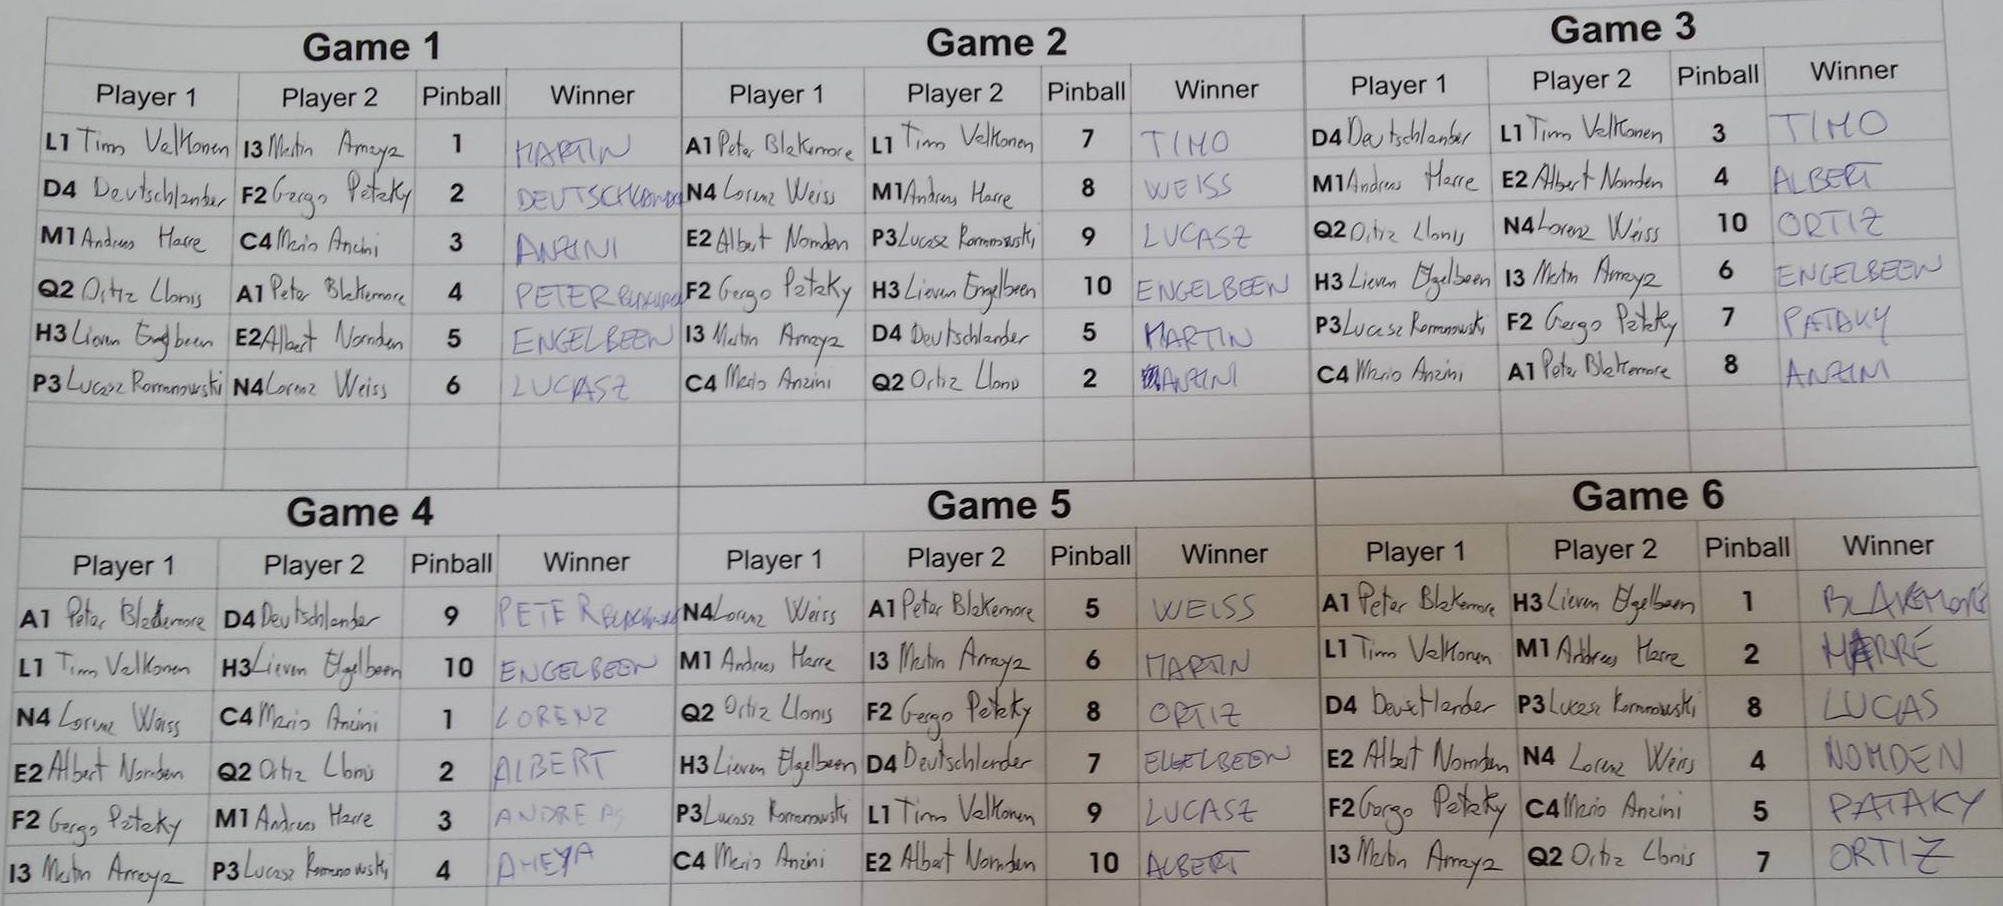 Game 1
Player 1 Player 2 Pinball Winner
L1 Timo Valkonen I3 Martin Amaya 1 MARTIN
D4 Deutschlander F2 Gergo Pataky 2 DEUTSCHLANDER
M1 Andreas Harre C4 Mario Anzini 3 ANZINI
Q2 Ortiz Llonis A1 Peter Blakemore 4 PETER BLAKEMORE
H3 Lieven Engelbeen E2 Albert Nomden 5 ENGELBEEN
P3 Lucasz Romanowski N4 Lorenz Weiss 6 LUCASZ
Game 2
Player 1 Player 2 Pinball Winner
A1 Peter Blakemore L1 Timo Valkonen 7 TIMO
N4 Lorenz Weiss M1 Andreas Harre 8 WEISS
E2 Albert Nomden P3 Lucasz Romanowski 9 LUCASZ
F2 Gergo Pataky H3 Lieven Engelbeen 10 ENGELBEEN
I3 Martin Amaya D4 Deutschlander 5 MARTIN
C4 Mario Anzini Q2 Ortiz Llonis 2 ANZINI
Game 3
Player 1 Player 2 Pinball Winner
D4 Deutschlander L1 Timo Valkonen 3 TIMO
M1 Andreas Harre E2 Albert Nomden 4 ALBERT
Q2 Ortiz Llonis N4 Lorenz Weiss 10 ORTIZ
H3 Lieven Elgelbeen I3 Martin Amaya 6 ENGELBEEN
P3 Lucasz Romanowski F2 Gergo Pataky 7 PATAKY
C4 Mario Anzini A1 Peter Blakemore 8 ANZINI
Game 4
Player 1 Player 2 Pinball Winner
A1 Peter Blakemore D4 Deutschlander 9 PETER BLAKEMORE
L1 Timo Valkonen H3 Lieven Elgelbeen 10 ENGELBEEN
N4 Lorenz Weiss C4 Mario Anzini 1 LORENZ
E2 Albert Nomden Q2 Ortiz Llonis 2 ALBERT
F2 Gergo Pataky M1 Andreas Harre 3 ANDREAS
I3 Martin Amaya P3 Lucasz Romanowski 4 AMEYA
Game 5
Player 1 Player 2 Pinball Winner
N4 Lorenz Weiss A1 Peter Blakemore 5 WEISS
M1 Andreas Harre I3 Martin Amaya 6 MARTIN
Q2 Ortiz Llonis F2 Gergo Pataky 8 ORTIZ
H3 Lieven Elgelbeen D4 Deutschlander 7 ELGELBEEN
P3 Lucasz Romanowski L1 Timo Valkonen 9 LUCASZ
C4 Mario Anzini E2 Albert Nomden 10 ALBERT
Game 6
Player 1 Player 2 Pinball Winner
A1 Peter Blakemore H3 Lieven Elgelbeen 1 BLAKEMORE
L1 Timo Valkonen M1 Andreas Harre 2 HARRE
D4 Deustlander P3 Lucasz Romanowski 8 LUCAS
E2 Albert Nomden N4 Lorenz Weiss 4 NOMDEN
F2 Gorgo Pataky C4 Mario Anzini 5 PATAKY
I3 Martin Amaya Q2 Ortiz Llonis 7 ORTIZ